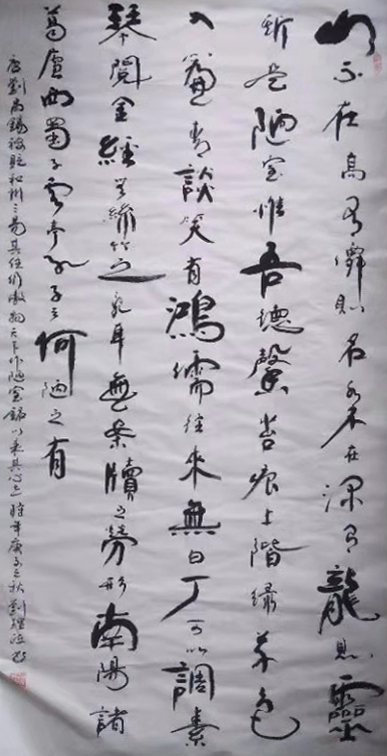 山不在高有僊則名水不在深有龍則靈
斯是陋室惟吾德馨苔痕上階綠草色
入簾青談笑有鴻儒往來無白丁可以調素
琴閱金經无絲竹之亂耳無案牘之勞形南陽諸
葛廬西蜀子雲亭孔子云何陋之有
唐劉禹錫被貶和州作陋室銘以表其心時年庚子之秋劉